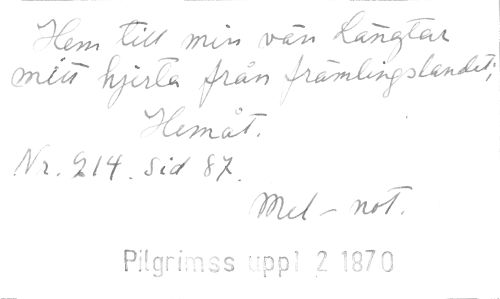 Hem till min vän längtar
mitt hjerta från främlingslandet;
Hemåt.
Nr. 214. Sid 87.
Mel - not.
Pilgrimss uppl 2 1870